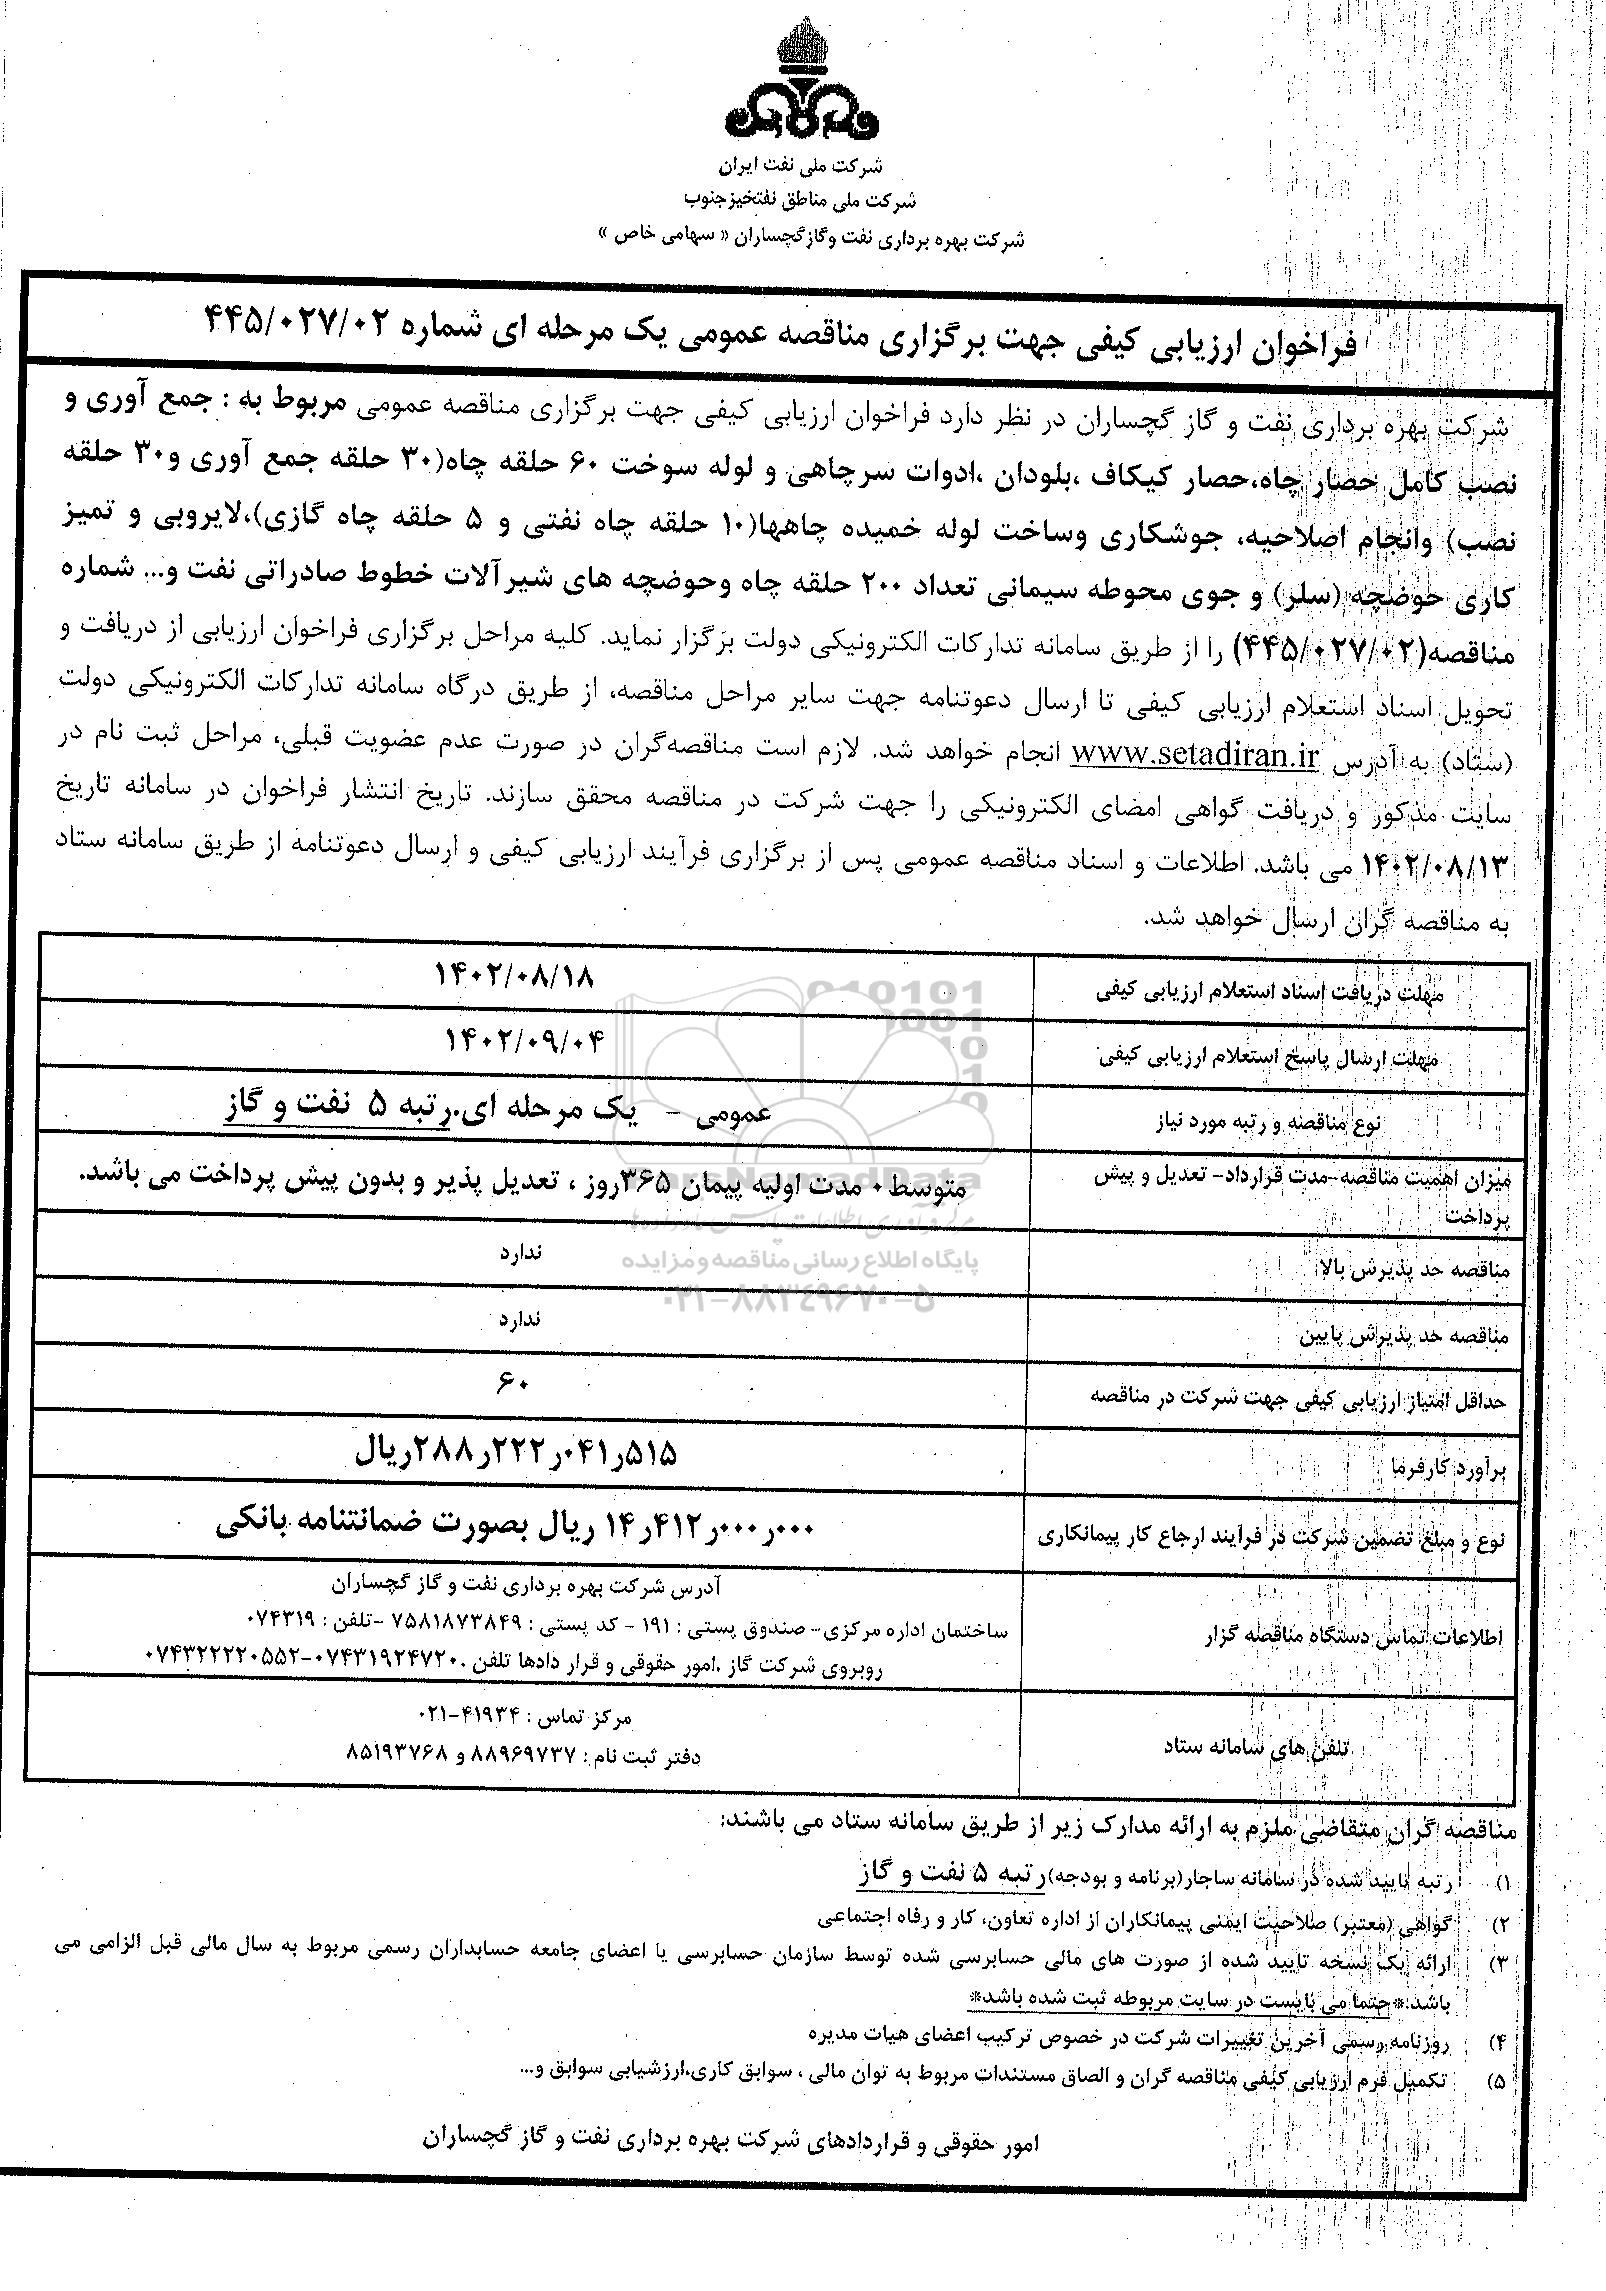 شرکت ملی نفت ایران
شرکت ملی مناطق نفتخیزجنوب
شرکت بهره برداری نفت وگازگچساران « سهامی خاص »
فراخوان ارزیابی کیفی جهت برگزاری مناقصه عمومی یک مرحله ای شماره ۴۴۵/۰۲۷/۰۲
شرکت بهره برداری نفت و گاز گچساران در نظر دارد فراخوان ارزیابی کیفی جهت برگزاری مناقصه عمومی مربوط به : جمع آوری و
نصب کامل حصار چاه،حصار کیکاف ،بلودان ،ادوات سرچاهی و لوله سوخت ۶۰ حلقه چاه(۳۰ حلقه جمع آوری و۳۰ حلقه
نصب) وانجام اصلاحیه، جوشکاری وساخت لوله خمیده چاهها(۱۰ حلقه چاه نفتی و ۵ حلقه چاه گازی)،لایروبی و تمیز
کاری حوضچه (سلر) و جوی محوطه سیمانی تعداد ۲۰۰ حلقه چاه وحوضچه های شیرآلات خطوط صادراتی نفت و... شماره
مناقصه(۴۴۵/۰۲۷/۰۲) را از طریق سامانه تدارکات الکترونیکی دولت برگزار نماید. کلیه مراحل برگزاری فراخوان ارزیابی از دریافت و
تحویل اسناد استعلام ارزیابی کیفی تا ارسال دعوتنامه جهت سایر مراحل مناقصه، از طریق درگاه سامانه تدارکات الکترونیکی دولت
(ستاد) به آدرس www.setadiran.ir انجام خواهد شد. لازم است مناقصه‌گران در صورت عدم عضویت قبلی، مراحل ثبت نام در
سایت مذکور و دریافت گواهی امضای الکترونیکی را جهت شرکت در مناقصه محقق سازند. تاریخ انتشار فراخوان در سامانه تاریخ
۱۴۰۲/۰۸/۱۳ می باشد. اطلاعات و اسناد مناقصه عمومی پس از برگزاری فرآیند ارزیابی کیفی و ارسال دعوتنامه از طریق سامانه ستاد
به مناقصه گران ارسال خواهد شد.
مهلت دریافت اسناد استعلام ارزیابی کیفی ۱۴۰۲/۰۸/۱۸
مهلت ارسال پاسخ استعلام ارزیابی کیفی ۱۴۰۲/۰۹/۰۴
نوع مناقصه و رتبه مورد نیاز عمومی - یک مرحله ای.رتبه ۵ نفت و گاز
میزان اهمیت مناقصه-مدت قرارداد- تعدیل و پیش متوسط۰ مدت اولیه پیمان ۳۶۵روز ، تعدیل پذیر و بدون پیش پرداخت می باشد.
پرداخت
مناقصه حد پذیرش بالا ندارد
مناقصه حد پذیرش پایین ندارد
حداقل امتیاز ارزیابی کیفی جهت شرکت در مناقصه ۶۰
برآورد کارفرما ۲۸۸ر۲۲۲ر۰۴۱ر۵۱۵ریال
نوع و مبلغ تضمین شرکت در فرآیند ارجاع کار پیمانکاری ۱۴ر۴۱۲ر۰۰۰ر۰۰۰ ریال بصورت ضمانتنامه بانکی
اطلاعات تماس دستگاه مناقصه گزار
آدرس شرکت بهره برداری نفت و گاز گچساران
ساختمان اداره مرکزی- صندوق پستی : ۱۹۱ - کد پستی : ۷۵۸۱۸۷۳۸۴۹ -تلفن : ۰۷۴۳۱۹
روبروی شرکت گاز .امور حقوقی و قرار دادها تلفن .۰۷۴۳۱۹۲۴۷۲۰-۰۷۴۳۲۲۲۲۰۵۵۲
تلفن های سامانه ستاد
مرکز تماس : ۴۱۹۳۴-۰۲۱
دفتر ثبت نام : ۸۸۹۶۹۷۳۷ و ۸۵۱۹۳۷۶۸
پایگاه اطلاع رسانی مناقصه و مزایده
۰۲۱-۸۸۳۴۹۶۷۰-۵
مناقصه گران متقاضی ملزم به ارائه مدارک زیر از طریق سامانه ستاد می باشند:
۱) رتبه تایید شده در سامانه ساجار(برنامه و بودجه)رتبه ۵ نفت و گاز
۲) گواهی (معتبر) صلاحیت ایمنی پیمانکاران از اداره تعاون، کار و رفاه اجتماعی
۳) ارائه یک نسخه تایید شده از صورت های مالی حسابرسی شده توسط سازمان حسابرسی یا اعضای جامعه حسابداران رسمی مربوط به سال مالی قبل الزامی می
باشد.*حتما می بایست در سایت مربوطه ثبت شده باشد*
۴) روزنامه رسمی آخرین تغییرات شرکت در خصوص ترکیب اعضای هیات مدیره
۵) تکمیل فرم ارزیابی کیفی مناقصه گران و الصاق مستندات مربوط به توان مالی ، سوابق کاری،ارزشیابی سوابق و...
امور حقوقی و قراردادهای شرکت بهره برداری نفت و گاز گچساران